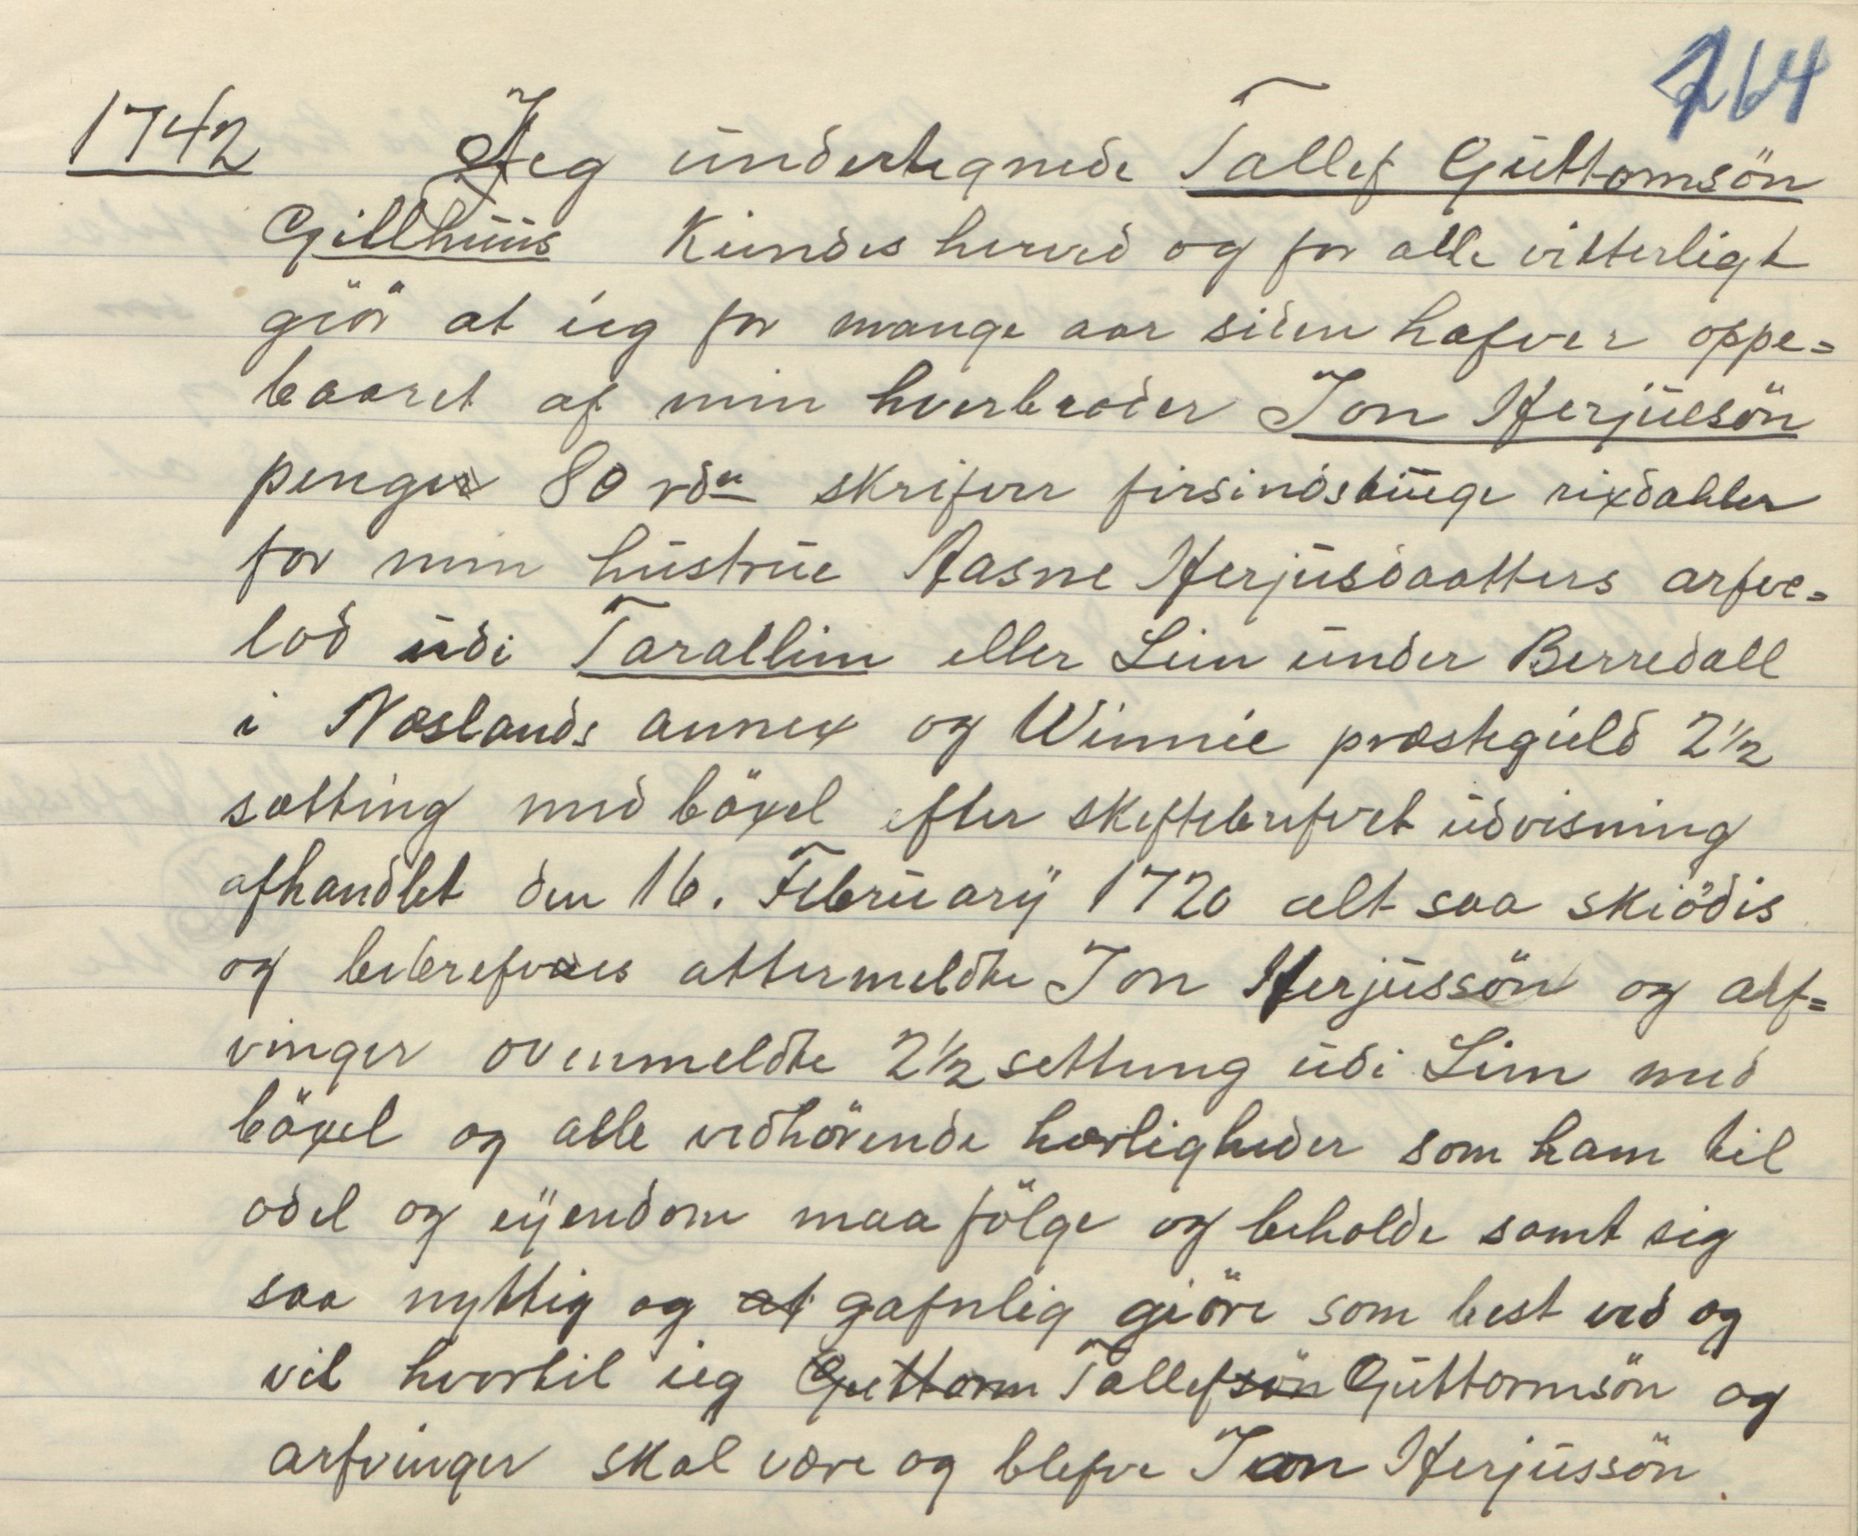 764
1742 Jeg undertegnede Tallef Guttomsön
Gillhuus Kiendes herved og for alle vitterligt
giör at ieg for mange aar siden hafver oppe=
baaret af min hverbroder Jon Herjuesön
penge 80 rdr skrifver firsindstiuge rixdahler
for min hustrue Aasne Herjusdaatters arfve=
lod udi Tarallim eller Lim under Berredall
i Næslands annex og Winnie præstegield 2½
sætting med böxel efter skeftebrefvet udvisning
afhandlet den 16. February 1720 alt saa skiödis
og bebrefves attermeldte Jon Herjussön og arf=
vinger ovenmeldte 2½ settung udi Lim med
böxel og alle vedhörende herligheder som ham til
odel og eÿendom maa fölge og beholde samt sig
saa nyttig og at gafnlig giöre som best ved og
vil hvortil ieg Guttorm Tallefsön Guttormsön og
arfvinger skal være og blefve Jon Herjussön.